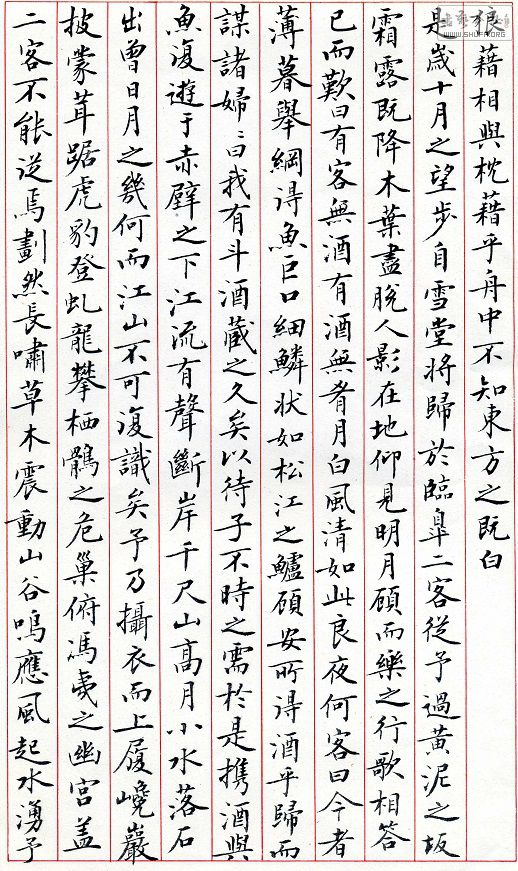 狼藉相與枕藉乎舟中不知東方之既白
是歲十月之望步自雪堂將歸於臨皋二客從予過黃泥之坂
霜露既降木葉盡脫人影在地仰見明月顧而樂之行歌相答
已而歎曰有客無酒有酒無肴月白風清如此良夜何客曰今者
薄暮舉網得魚巨口細鱗狀如松江之鱸顧安所得酒乎歸而
謀諸婦〻曰我有斗酒藏之久矣以待子不時之需於是攜酒與
魚復遊于赤壁之下江流有聲斷岸千尺山高月小水落石
出曾日月之幾何而江山不可復識矣予乃攝衣而上履巉巖
披蒙茸踞虎豹登虯龍攀栖鶻之危巢俯馮夷之幽宮蓋
二客不能從焉劃然長嘯草木震動山谷鳴應風起水湧予
WWW.SHUFA.ORG